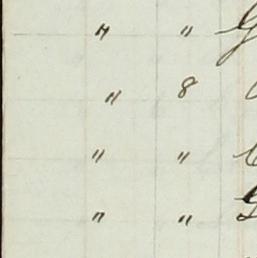 " "
" 8
" "
" "